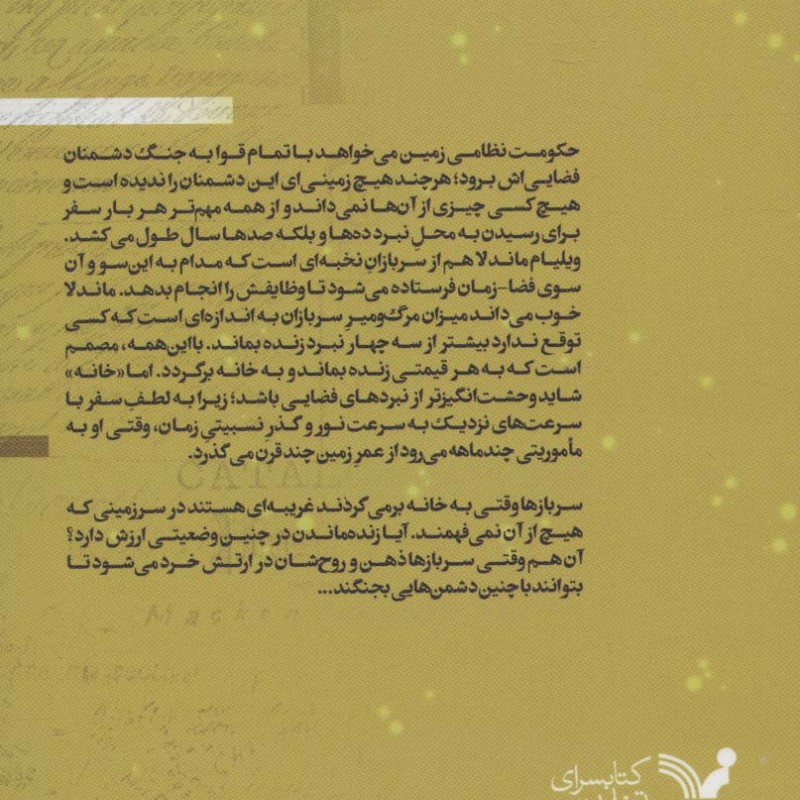 حکومت نظامی زمین می‌خواهد با تمام قوا به جنگ دشمنان
فضایی‌اش برود؛ هرچند هیچ زمینی‌ای این دشمنان را ندیده است و
هیچ‌کسی چیزی از آن‌ها نمی‌داند و از همه مهم‌تر هر بار سفر
برای رسیدن به محلِ نبرد ده‌ها و بلکه صدها سال طول می‌کشد.
ویلیام ماندلا هم از سربازانِ نخبه‌ای است که مدام به این‌سو و آن
سوی فضا-زمان فرستاده می‌شود تا وظایفش را انجام بدهد. ماندلا
خوب می‌داند میزان مرگ‌ومیرِ سربازان به اندازه‌ای است که کسی
توقع ندارد بیشتر از سه چهار نبرد زنده بماند. بااین‌همه، مصمم
است که به هر قیمتی زنده بماند و به خانه برگردد. اما «خانه»
شاید وحشت‌انگیزتر از نبردهای فضایی باشد؛ زیرا به لطفِ سفر با
سرعت‌های نزدیک به سرعت نور و گذرِ نسبیتیِ زمان، وقتی او به
مأموریتی چندماهه می‌رود از عمرِ زمین چند قرن می‌گذرد.
سربازها وقتی به خانه برمی‌گردند غریبه‌ای هستند در سرزمینی که
هیچ از آن نمی‌فهمند. آیا زنده‌ماندن در چنین وضعیتی ارزش دارد؟
آن هم وقتی سربازها ذهن و روح‌شان در ارتش خرد می‌شود تا
بتوانند با چنین دشمن‌هایی بجنگند...
CATAL
Macken
کتابسرای